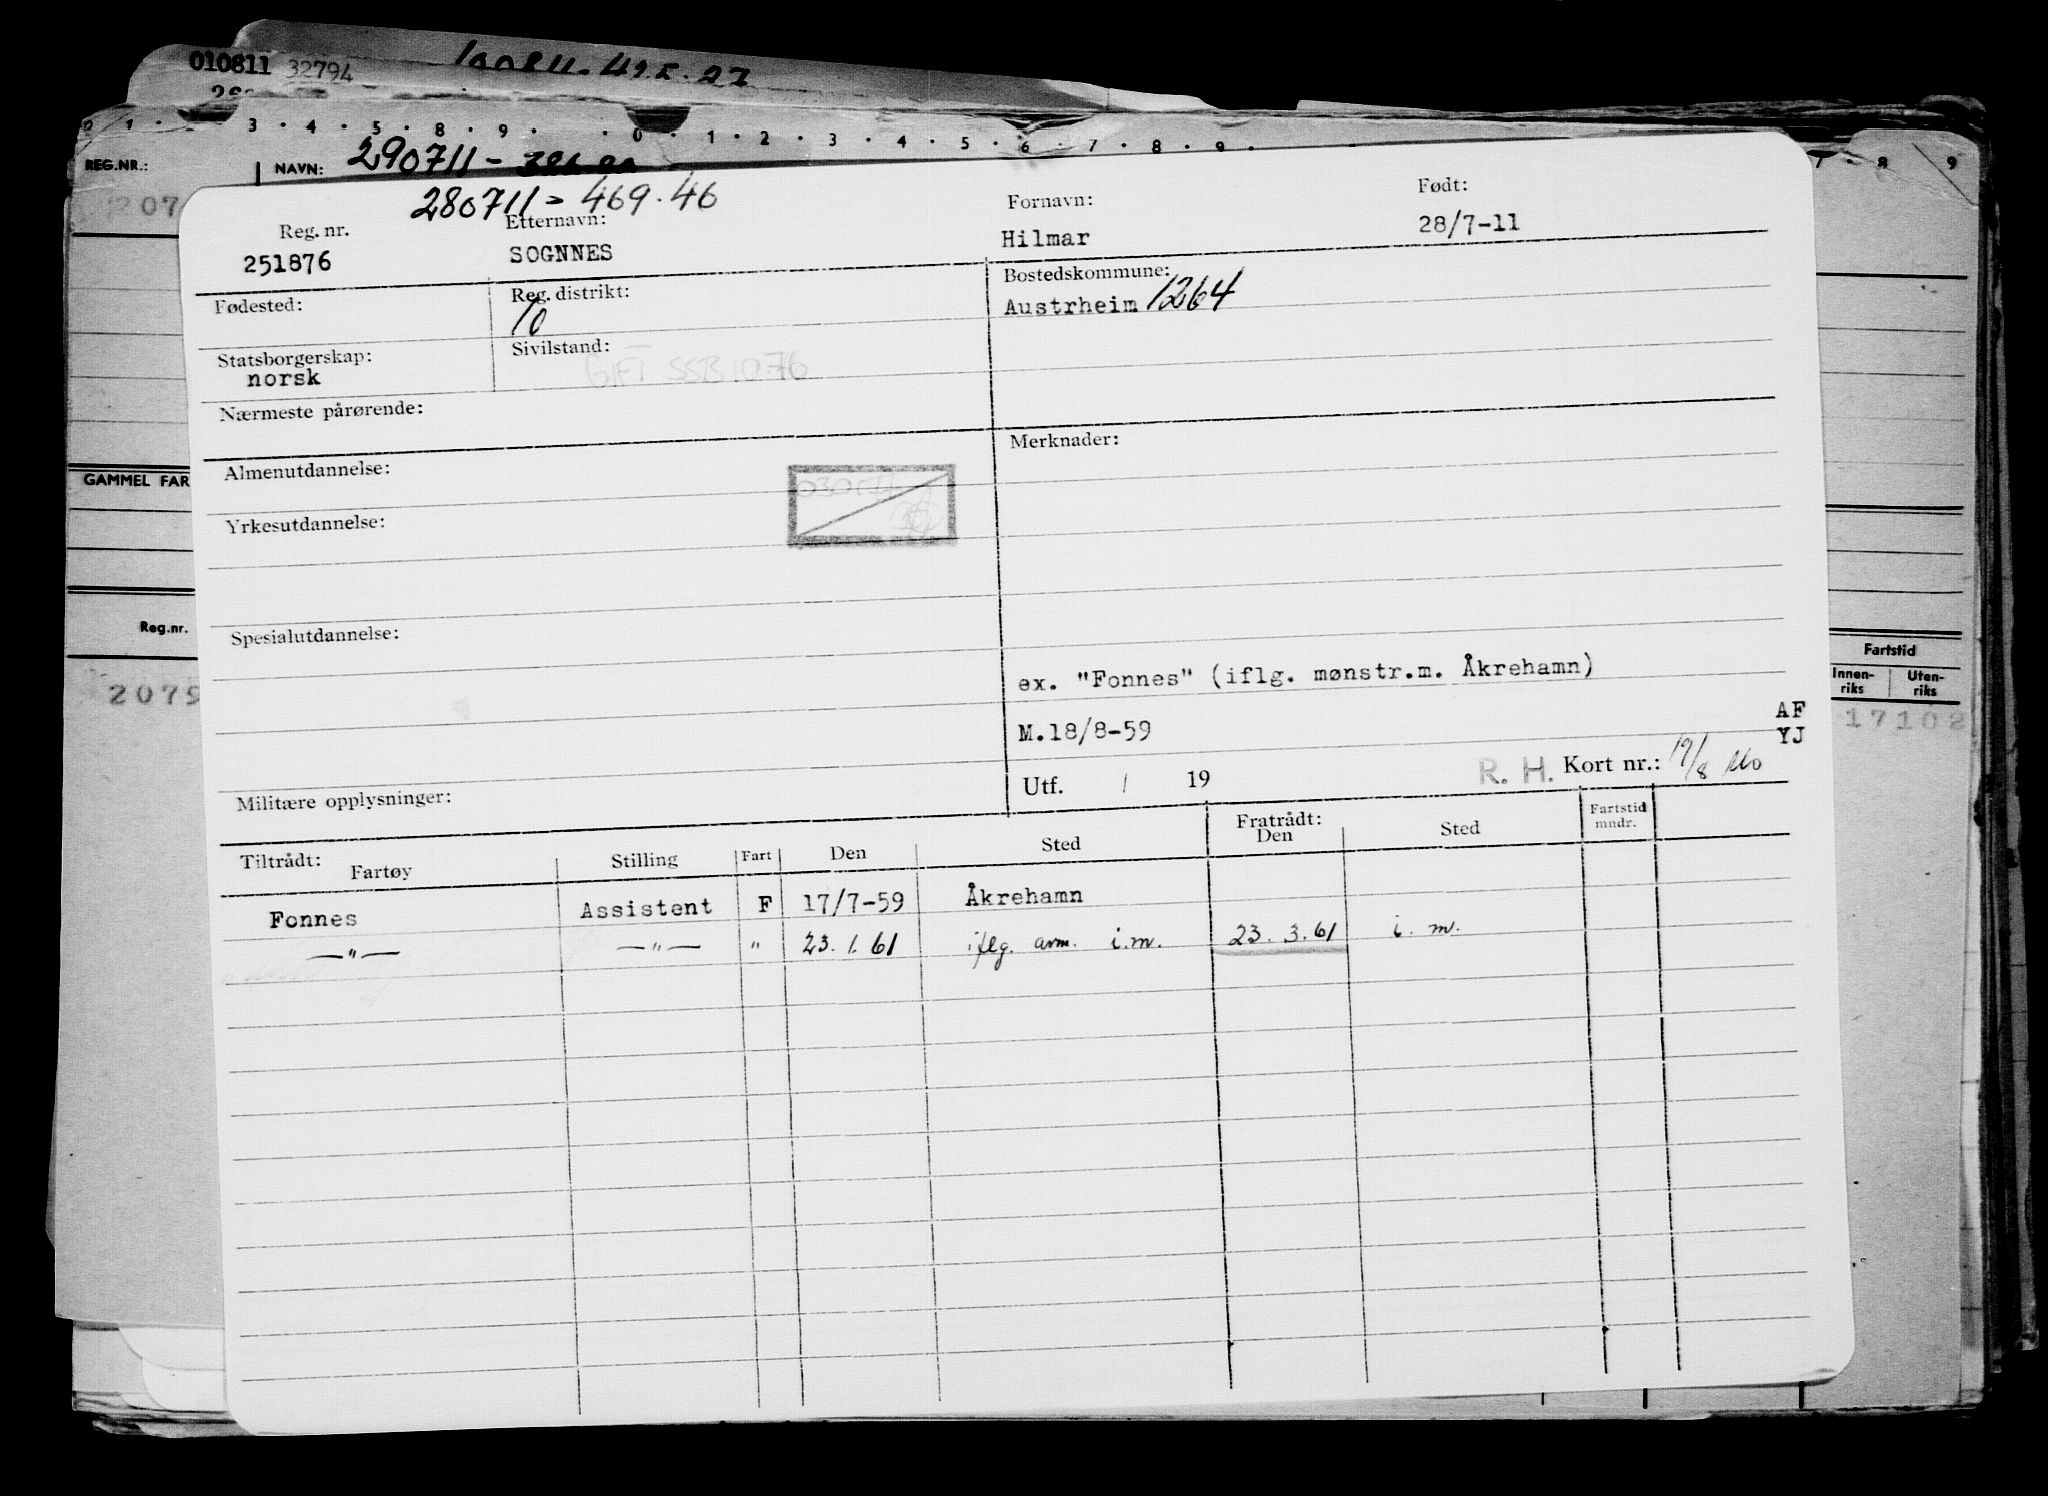 010811 32794
2 1 · 3 · 4 · 5 · 8 · 9 · 0 · 1 · 2 · 3 · 4 · 5 · 6 · 7 · 8 · 9 · 8 9
REG.NR.: NAVN: 290711 -
207
280711 - 469.46
Reg. nr. Etternavn: Fornavn: Født:
251876 SOGNNES Hilmar 28/7-11
Fødested: Reg. distrikt: Bostedskommune:
10 Austrheim 1264
Statsborgerskap: Sivilstand:
norsk GIFT SSB 10.76
Nærmeste pårørende:
Almenutdannelse: Merknader:
GAMMEL FAR
Yrkesutdannelse:
Reg.nr. Spesialutdannelse:
Fartstid
Innen-riks Uten-riks
2075 17102
ex. "Fonnes" (iflg. mønstr.m. Åkrehamn)
M.18/8-59 AF
YJ
Militære opplysninger: Utf. / 19 R. H. Kort nr.: 19/8
Tiltrådt: Fratrådt:
Fartøy Stilling Fart Den Sted Den Sted Fartstid mndr.
Fonnes Assistent F 17/7-59 Åkrehamn
—"— —"— " 23.1.61 iflg. avm. i.m. 23.3.61 i.m.